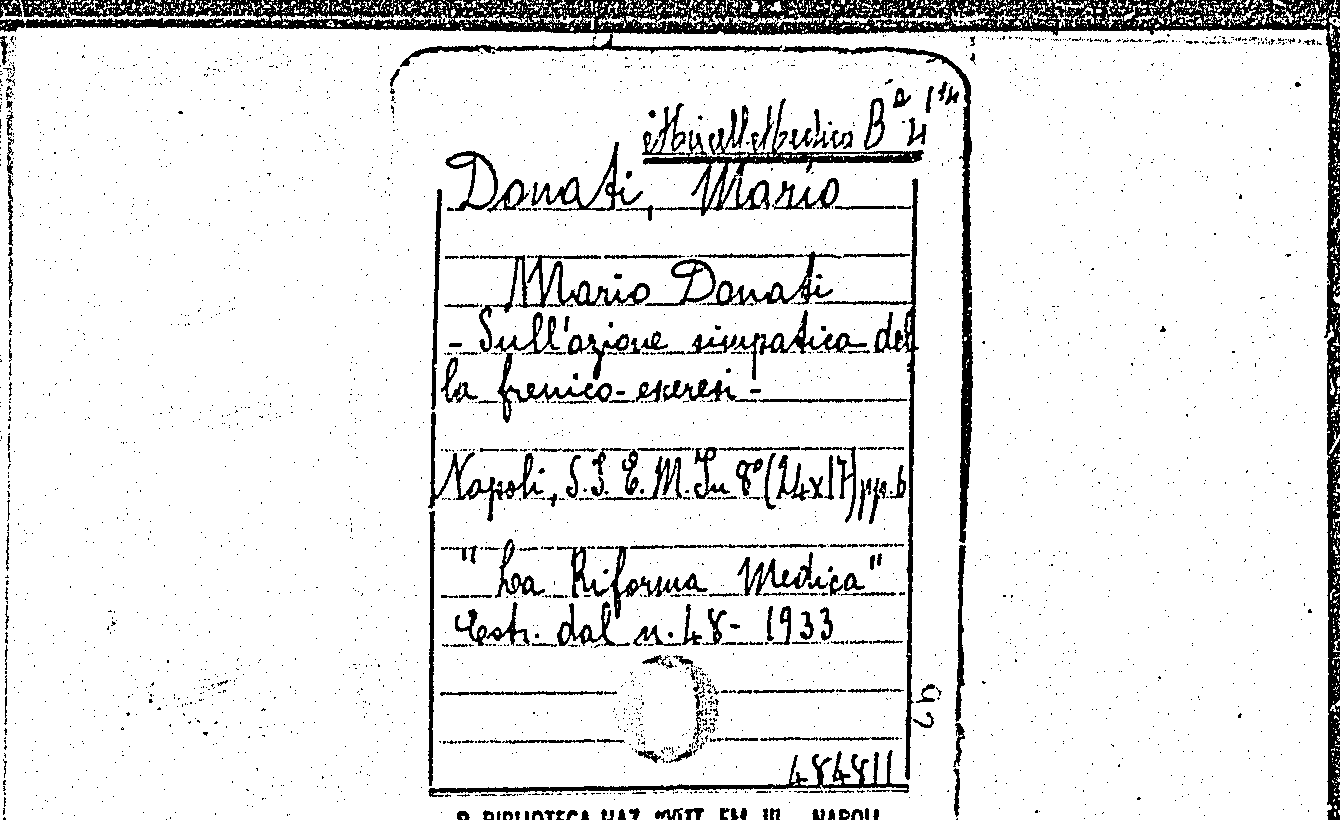 Miscell. Medica B^a 4 1^14
Donati, Mario
Mario Donati
- Sull'azione simpatica del
la frenico-exeresi -
Napoli, S.I.E.M. In 8° (24x17) pp. 6
"La Riforma Medica"
Estr. dal n. 48 - 1933
92
484811
R. BIBLIOTECA NAZ. "VITT. EM. III" NAPOLI